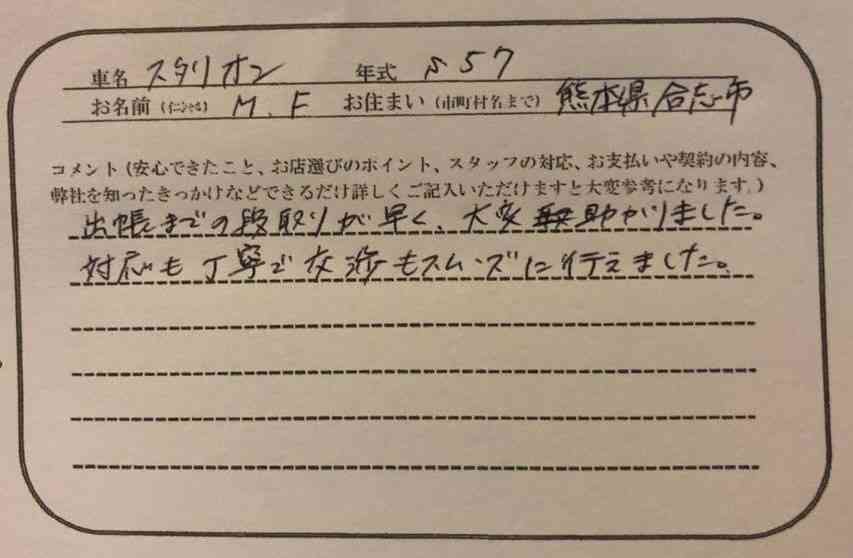 車名 スタリオン 年式 S57
お名前（イニシャル） M.F お住まい（市町村名まで） 熊本県合志市
コメント（安心できたこと、お店選びのポイント、スタッフの対応、お支払いや契約の内容、
弊社を知ったきっかけなどできるだけ詳しくご記入いただけますと大変参考になります。）
出帳までの段取りが早く、大変助かりました。
対応も丁寧で交渉もスムーズに行えました。